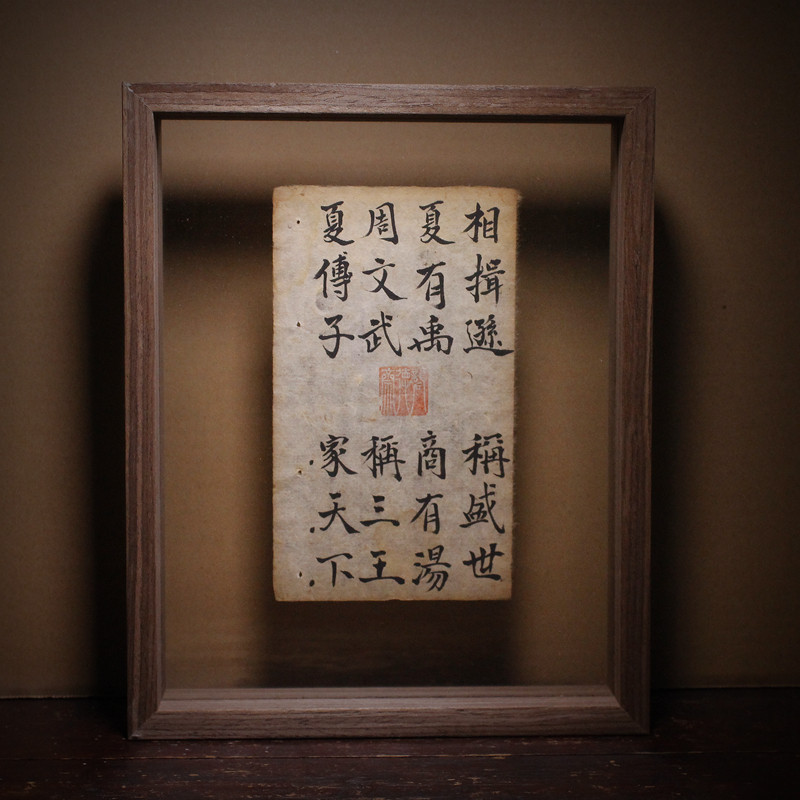 相揖遜 稱盛世
夏有禹 商有湯
周文武 稱三王
夏傳子 家天下